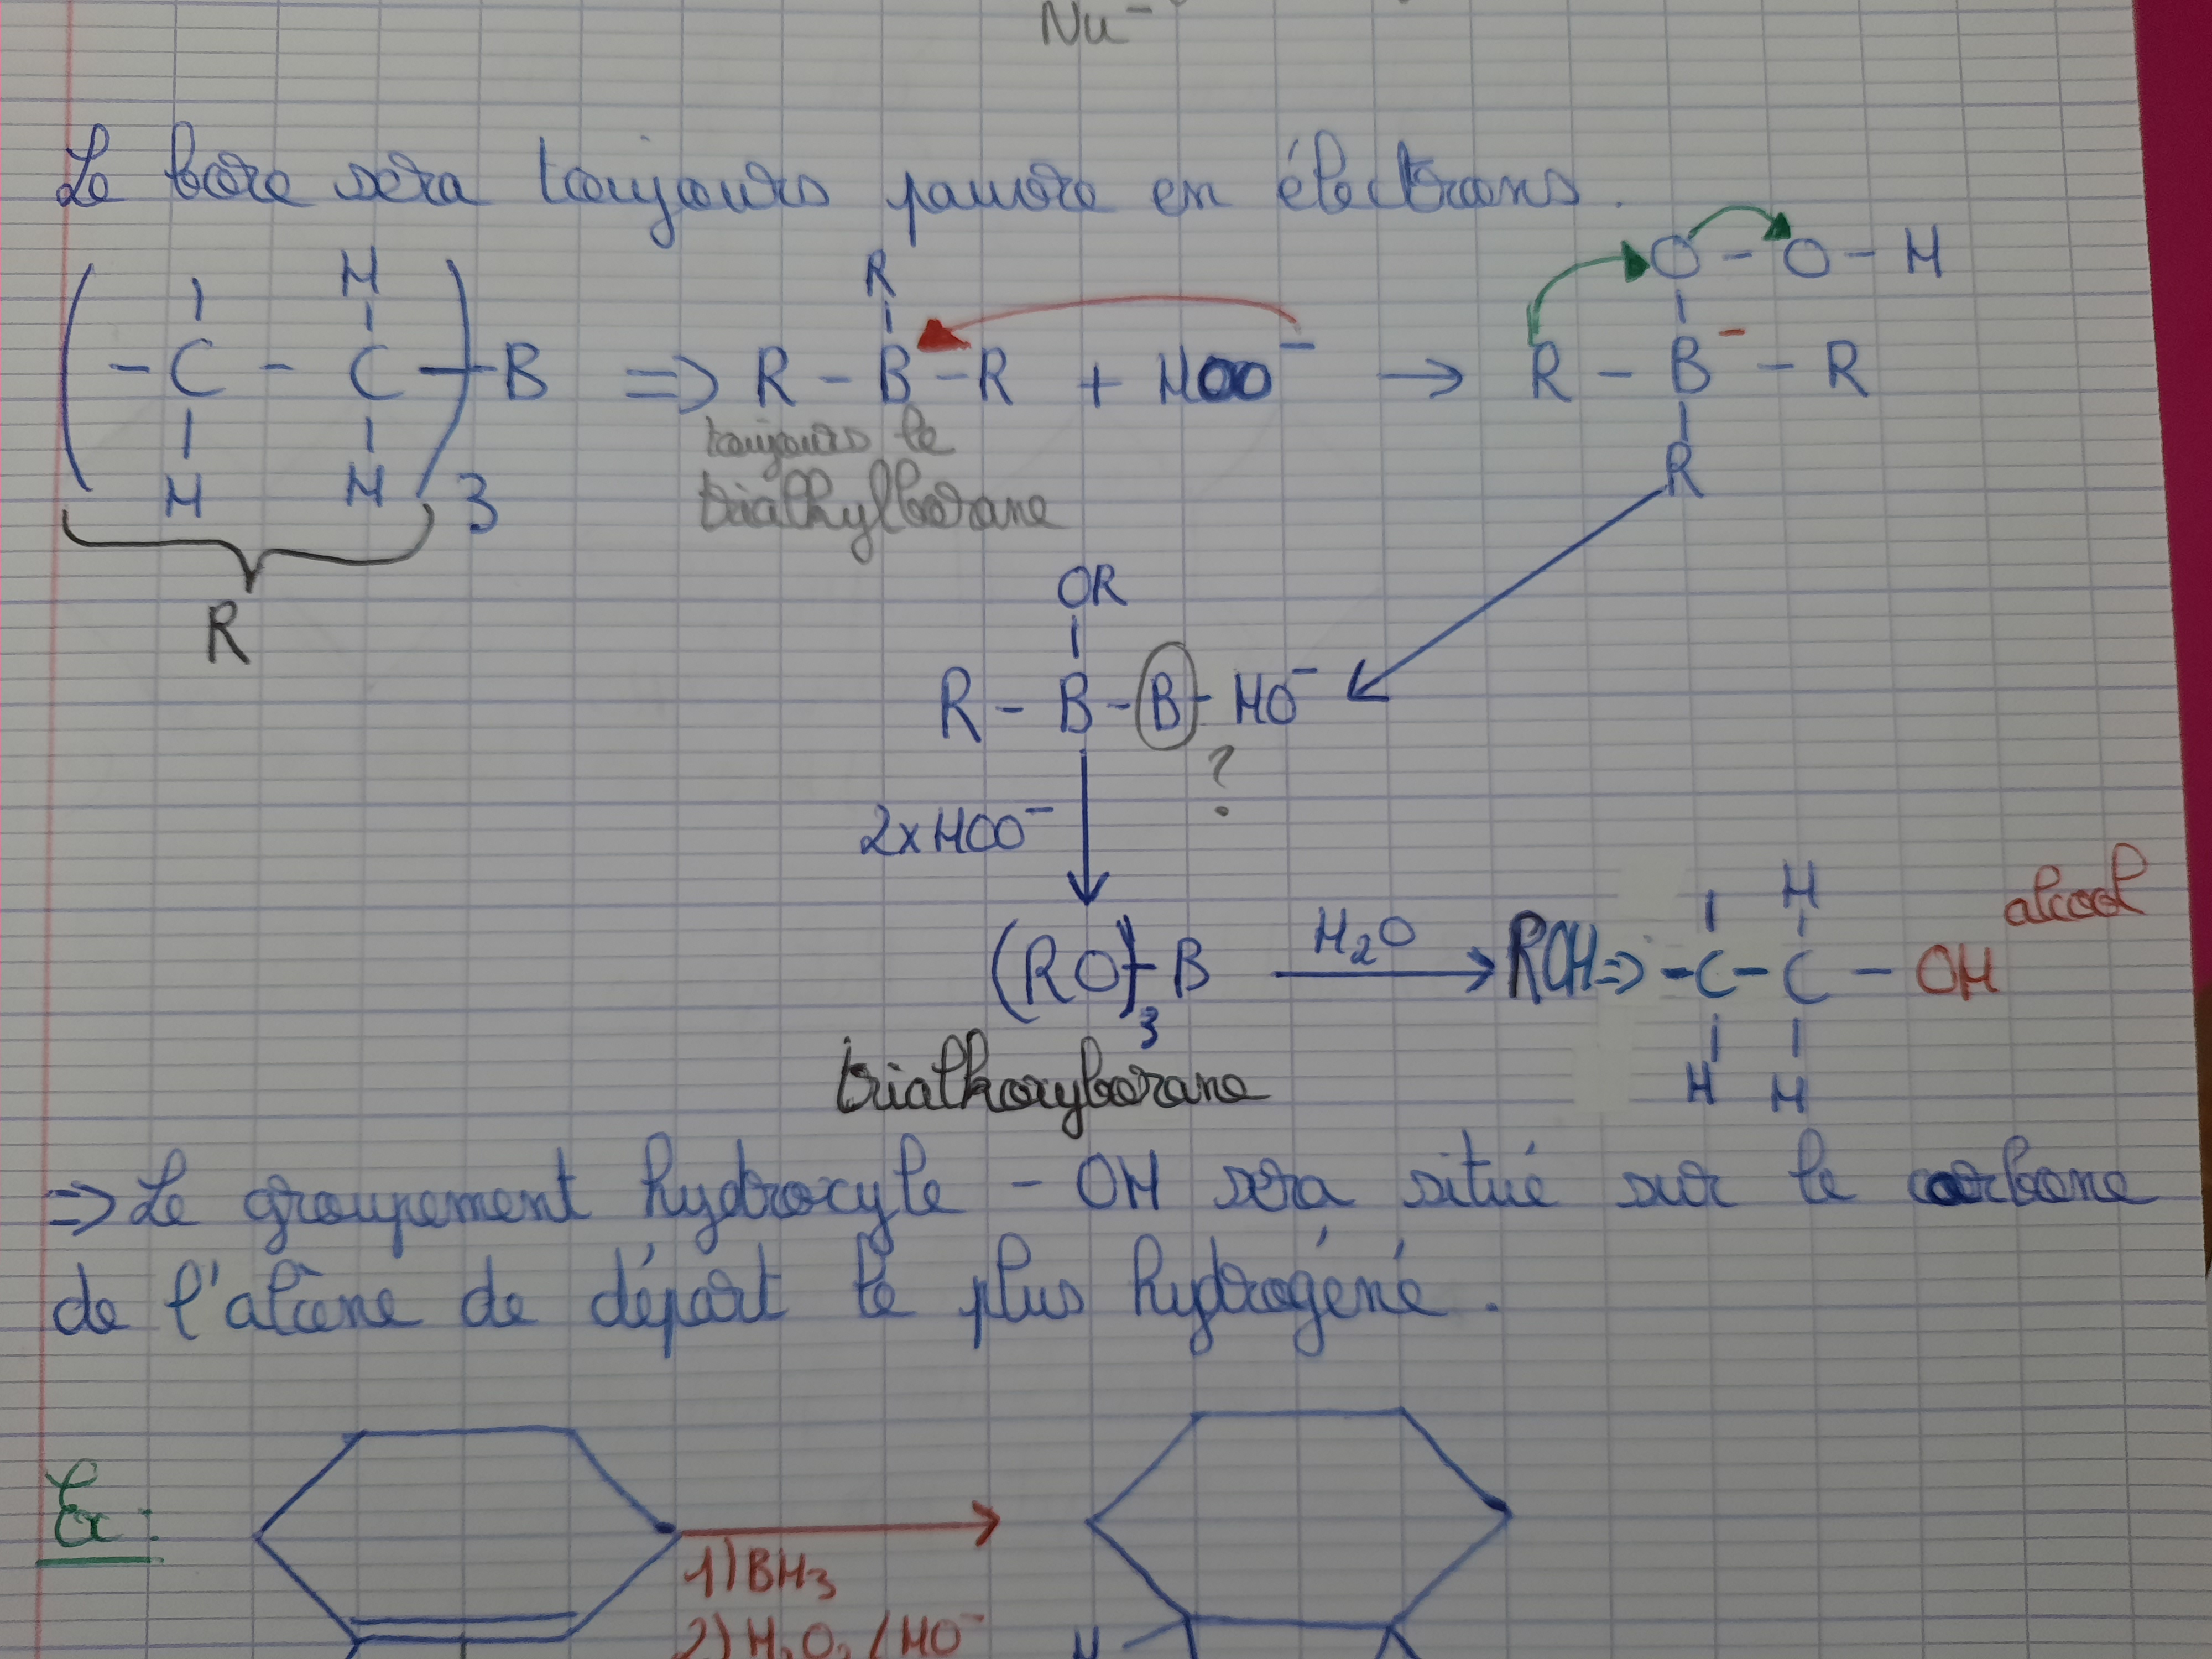 Nu⁻
Le bore sera toujours pauvre en électrons.
O - O - H
H
R
- C - C - B ⇒ R - B - R + HOO⁻ → R - B⁻ - R
toujours le
H H 3
R
trialkylborane
R
OR
R - B - B - HO⁻
?
2xHOO⁻
H
alcool
(RO)₃-B H₂O ROH ⇒ - C - C - OH
H H
trialkoxyborane
⇒ Le groupement hydroxyle - OH sera situé sur le carbone
de l'alcène de départ le plus hydrogéné.
Ex :
1) BH₃
2) H₂O₂ / HO⁻
H